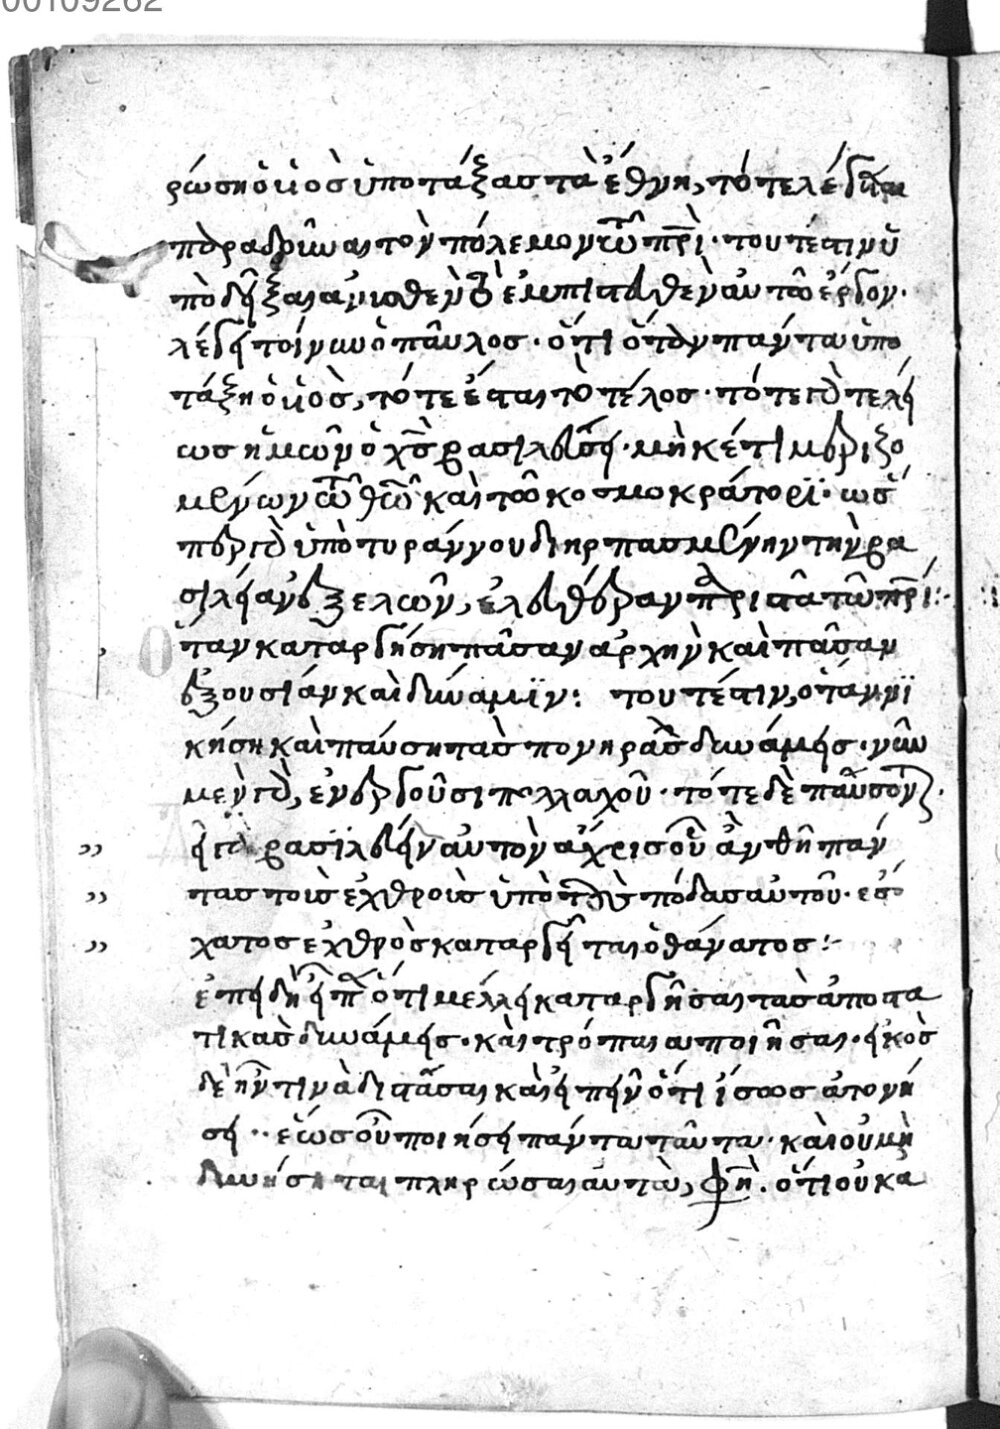 00109262
ρώση ὁ υἱὸσ ὑποτάξας τὰ ἔθνη, τότε λέγεται
παραδοῦναι τὸν πόλεμον τῶ πρὶ· τουτέστιν ὑ
ποδεῖξαι ἄνωθεν τὸ ἐμπιστευθὲν αὐτῶ ἔργον·
λέγει τοίνυν ὁ παῦλοσ· ὅτι ὅταν πάντα ὑπο
τάξη ὁ υἱὸσ, τότε ἔσται τὸ τέλοσ· τότε γὰρ τελεί
ωσ ἡμῶν ὁ χσ βασιλεύσει· μηκέτι μεριζο
μένων τῶ θῶ καὶ τῶ κοσμοκράτορϊ· ὥσ
περ γὰρ ὑπὸ τυράννου διηρπασμένην τὴν βα
σιλείαν ἐξελὼν, ἐλευθέραν παρίστα τῶ πρί:
ὅταν καταργήση πᾶσαν ἀρχὴν καὶ πᾶσαν
ἐξουσίαν καὶ δύναμϊν: τουτέστιν, ὅταν νϊ
κήση καὶ παύση τὰσ πονηρὰσ δυνάμεισ· νῦν
μὲν γὰρ, ἐνεργοῦσι πολλαχοῦ· τότε δὲ παύσονται·
δεῖ γὰρ βασϊλεύειν αὐτὸν ἄχρισ οὗ ἂν θῆ πάν
τασ τοὺσ ἐχθροὺσ ὑπὸ τοὺσ πόδασ αὐτοῦ· ἔσ
χατοσ ἐχθρὸσ καταργεῖται ὁ θάνατοσ:
ἐπειδὴ εἶπεν ὅτι μέλλει καταργῆσαι τὰσ ἀποστα
τικὰσ δυνάμεισ· καὶ τρόπαια ποιῆσαι· εἰκὸσ
δὲ ἦν τινὰ διστᾶσαι καὶ εἰπεῖν ὅτι ἴσωσ ἀτονή
σει·· ἕωσ οὗ ποιήσει πάντα ταῦτα· καὶ οὐ μὴ
δυνήσηται πληρῶσαι αὐτὰ, φη. ὅτι οὐκ ἀ